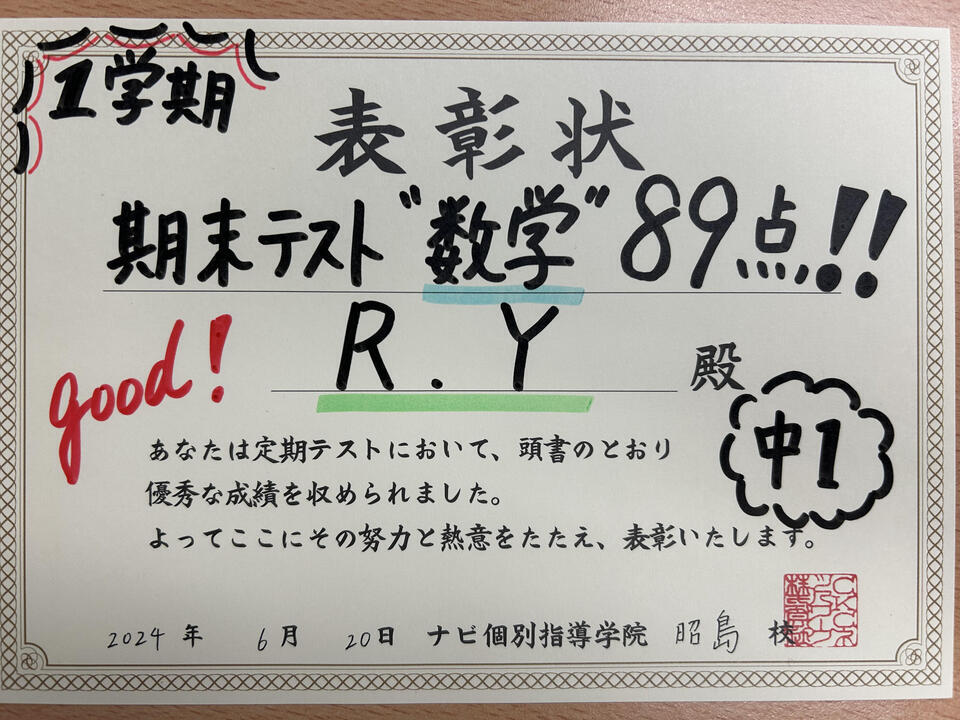 1学期
表彰状
期末テスト"数学"89点!!
R.Y 殿
good!
中1
あなたは定期テストにおいて、頭書のとおり
優秀な成績を収められました。
よってここにその努力と熱意をたたえ、表彰いたします。
2024年 6月 20日 ナビ個別指導学院 昭島 校